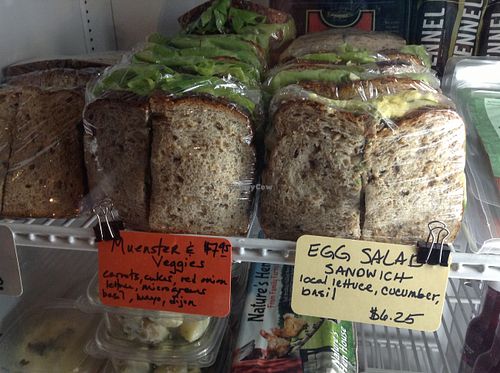 MUENSTER & $7.95
Veggies
carrots, cukes, red onion
lettuce, microgreens
basil, mayo, dijon
EGG SALAD
SANDWICH
local lettuce, cucumber,
basil
$6.25
Nature's
FENNEL
FENNEL